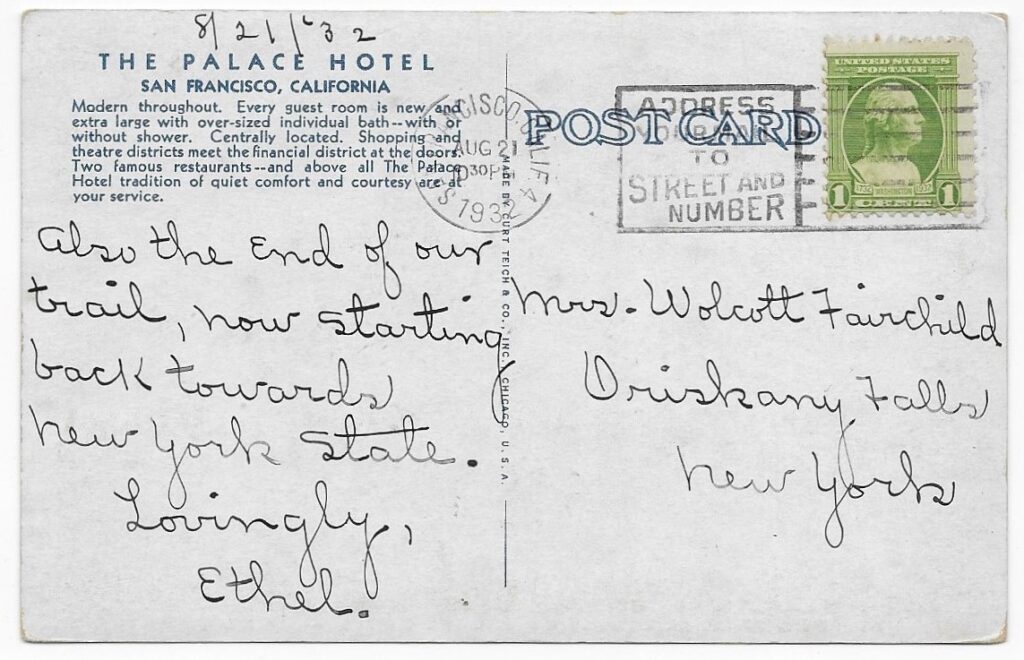 8/21/'32
THE PALACE HOTEL
SAN FRANCISCO, CALIFORNIA
Modern throughout. Every guest room is new and
extra large with over-sized individual bath--with or
without shower. Centrally located. Shopping and
theatre districts meet the financial district at the doors.
Two famous restaurants--and above all The Palace
Hotel tradition of quiet comfort and courtesy are at
your service.
Also the End of our
trail, now starting
back towards
New York State.
Lovingly,
Ethel.
AUG 21
30 P
1932
CALIF.
MADE BY CURT TEICH & CO., INC., CHICAGO, U. S. A.
POST CARD
ADDRESS
TO
STREET AND
NUMBER
UNITED STATES
POSTAGE
1732 WASHINGTON 1932
1 CENT 1
Mrs. Wolcott Fairchild
Oriskany Falls
New York